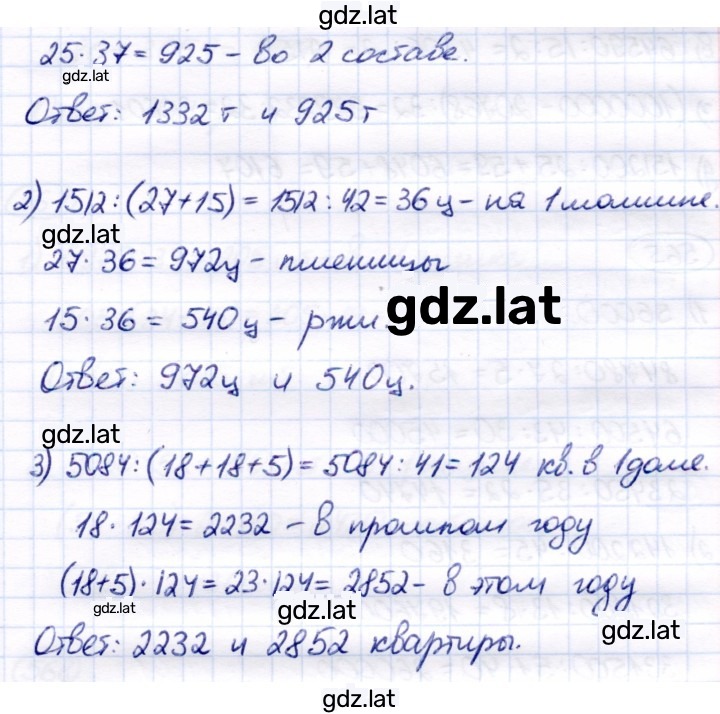 gdz.lat
25·37=925 - во 2 составе.
gdz.lat
Ответ: 1332 т и 925 т
2) 1512:(27+15)=1512:42=36ц - на 1 машине.
gdz.lat
27·36=972ц - пшеницы
gdz.lat
15·36=540ц - ржи.
Ответ: 972ц и 540ц.
gdz.lat
3) 5084:(18+18+5)=5084:41=124 кв. в 1 доме.
18·124=2232 - в прошлом году
(18+5)·124=23·124=2852 - в этом году
gdz.lat gdz.lat
gdz.lat
Ответ: 2232 и 2852 квартиры.
gdz.lat